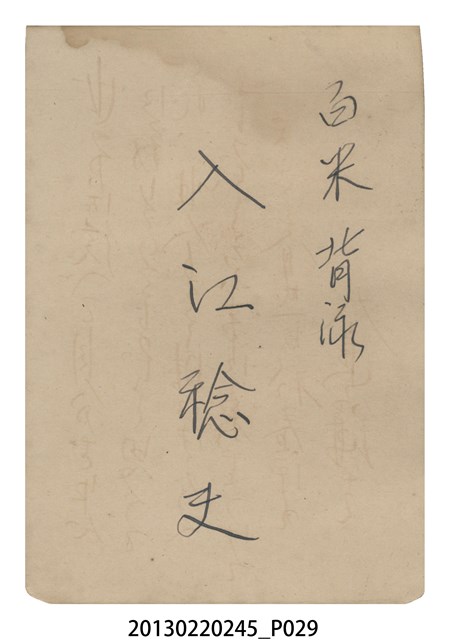 百米背泳
入江稔夫
20130220245_P029